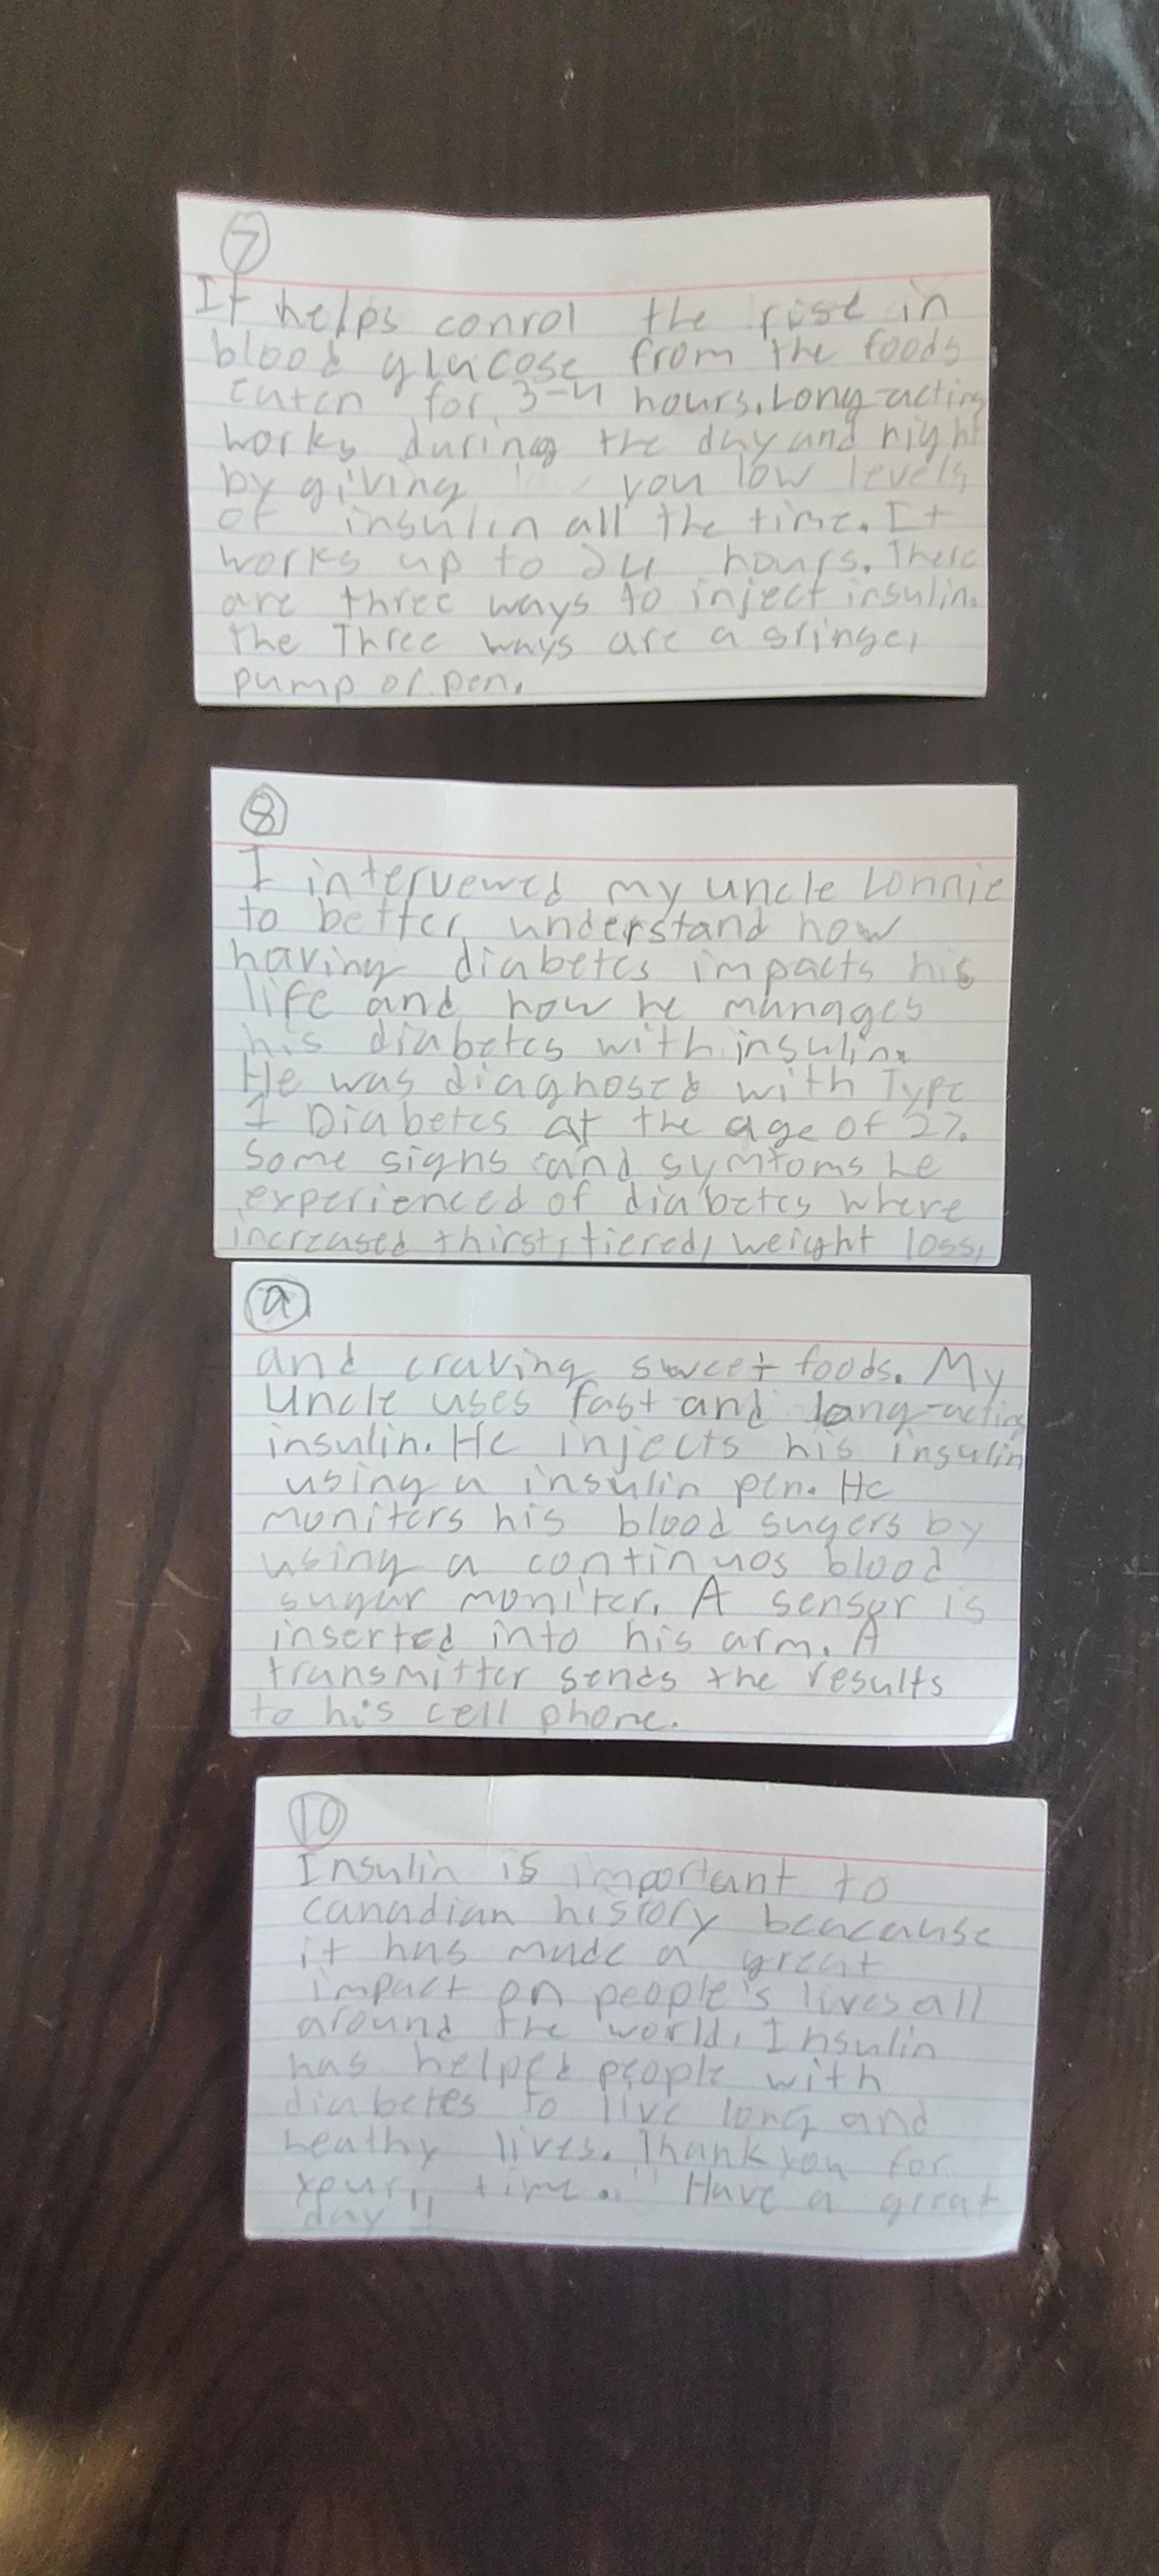 7
It helps conrol the rise in
blood glucose from the foods
eaten for 3-4 hours. Long-acting
works during the day and night
by giving you low levels
of insulin all the time. It
works up to 24 hours. There
are three ways to inject insulin.
the Three ways are a sringe,
pump or pen.
8
I intervewed my uncle Lonnie
to better understand how
having diabetes impacts his
life and how he manages
his diabetes with insulin.
He was diagnosed with Type
1 Diabetes at the age of 27.
Some signs and symtoms he
experienced of diabetes where
increased thirst, tiered, weight loss,
9
and craving sweet foods. My
Uncle uses fast and long-acting
insulin. He injects his insulin
using a insulin pen. He
moniters his blood sugers by
using a continuos blood
sugar moniter. A sensor is
inserted into his arm. A
transmitter sends the results
to his cell phone.
10
Insulin is important to
canadian history beacause
it has made a great
impact on people's lives all
around the world. Insulin
has helped people with
diabetes to live long and
heathy lives. Thank you for
your time. " Have a great
day"